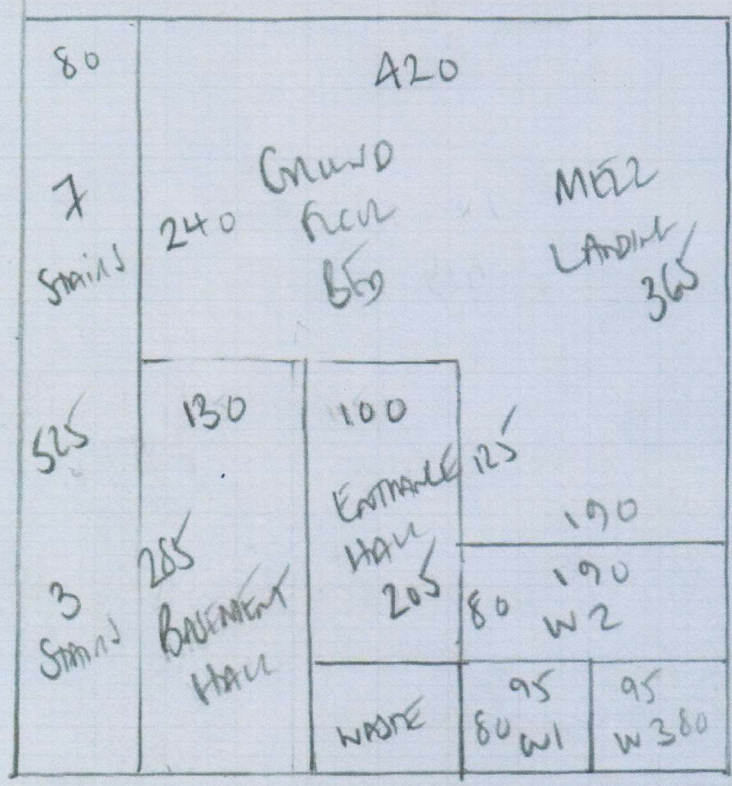 80
420
7
STAIRS
240
GROUND
FLOOR
BED
MEZZ
LANDING
365
525
130
100
125
ENTRANCE
HALL
205
190
285
BASEMENT
HALL
3
STAIRS
190
80 W2
WASTE
95
80 W1
95
W3 80